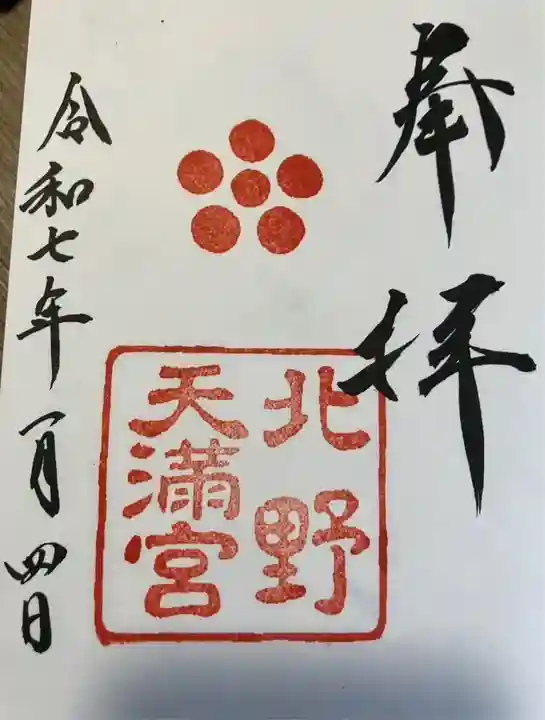 奉拝
北野
天満宮
令和七年一月四日